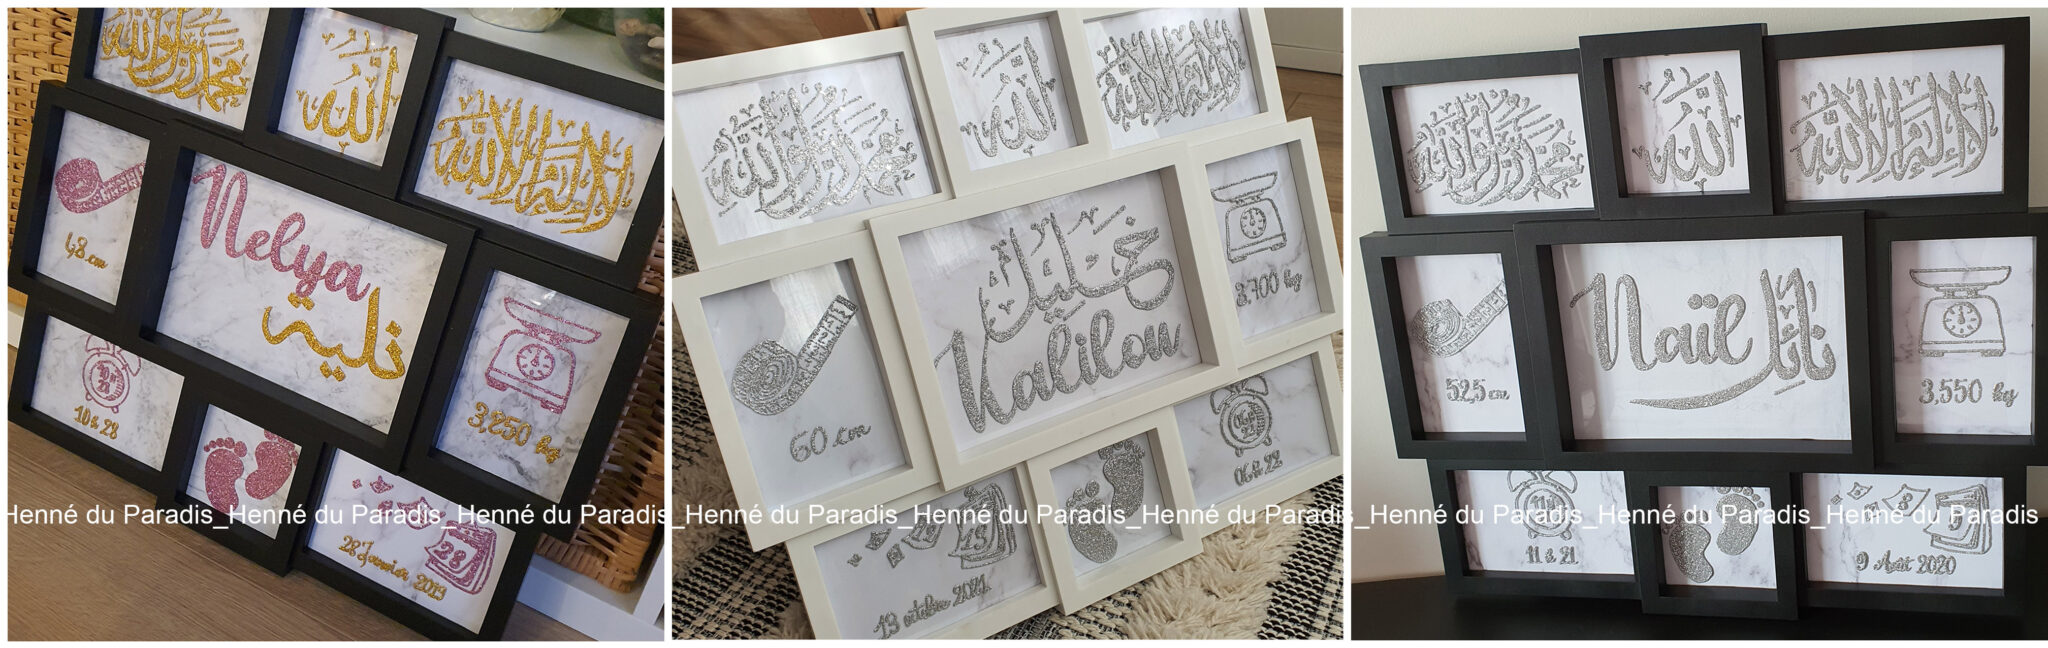 محمد رسول الله
الله
لا إله إلا الله
48 cm
Nelya
نلية
3,250 kg
10 h 28
28
28 Janvier 2019
محمد رسول الله
الله
لا إله إلا الله
خليل
Kalilou
3,700 kg
60 cm
06 h 22
13
13 octobre 2021
محمد رسول الله
الله
لا إله إلا الله
52,5 cm
Naïl
نائل
3,550 kg
11 h 21
9
9 Août 2020
Henné du Paradis_Henné du Paradis_ Henné du Paradis_Henné du Paradis_Henné du Paradis_Henné du Paradis_Henné du Paradis_Henné du Paradis_Henné du Paradis